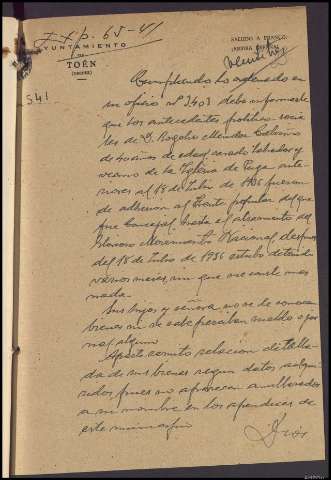 Exp. 65-41
AYUNTAMIENTO
DE
TOÉN
(ORENSE)
SALUDO A FRANCO:
¡ARRIBA ESPAÑA!
541
Cumpliendo lo ordenado en
su oficio nº 2403 debo informarle
que los antecedentes politico-socia
les de D. Rogelio Mendez
de 40 años de edad, casado labrador y
vecino de la Iglesia de Puga ante-
riores al 18 de Julio de 1936 fueron
de adhesion al Frente popular del que
fue Concejal hasta el alzamiento del
Glorioso Movimiento Nacional, despues
del 18 de Julio de 1936 estubo detenido
varios meses, sin que se sepa mas
nada.
Sus hijos y señora no se le conocen
bienes ni se sabe perciban sueldo o jor
nal alguno
Aparte remito relacion detalla
da de sus bienes segun datos adqui
ridos, pues no aparecen amillarados
a su nombre en los apendices de
este municipio
Dios